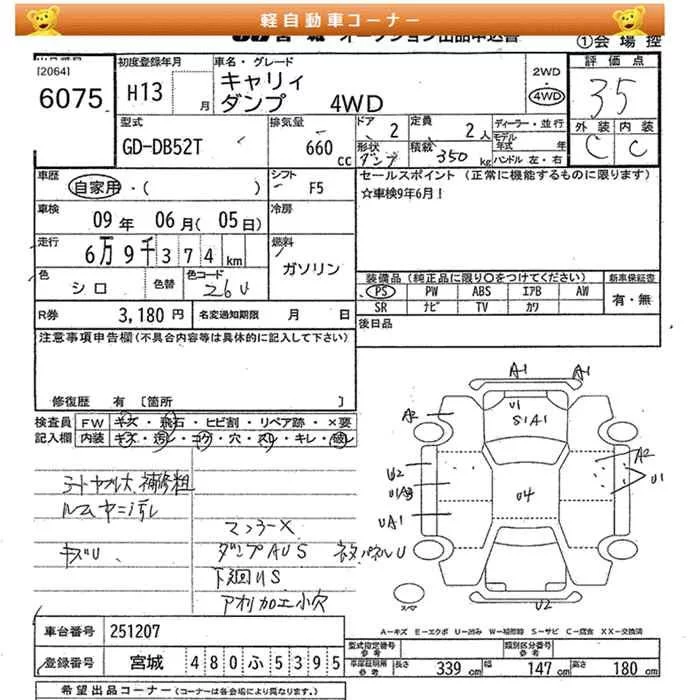 軽自動車コーナー
JU宮城 オークション出品申込書 ①会場控
出品番号 [2064] 6075
初度登録年月 H13 月
車名・グレード キャリィ ダンプ 4WD
2WD ・ 4WD
評価点 35
外装 内装 C C
型式 GD-DB52T
排気量 660 cc
ドア 2
定員 2人
形状 ダンプ
積載 350 kg
ディーラー・並行
モデル年式 年
ハンドル 左・右
車歴 自家用・( )
シフト F5
セールスポイント (正常に機能するものに限ります)
☆車検9年6月!
車検 09年 06月(05日)
冷房
走行 6万9千374km
燃料 ガソリン
色 シロ
色替
色コード 26U
装備品(純正品に限り○をつけてください)
PS PW ABS エアB AW
SR ナビ TV カワ
新車保証書 有・無
R券 3,180円
名変通知期限 月 日
後日品
注意事項申告欄(不具合内容等は具体的に記入して下さい)
修復歴 有 [箇所 ]
検査員記入欄
FW キズ・飛石・ヒビ割・リペア跡・×要
内装 キズ・汚レ・コゲ・穴・スレ・キレ・破レ
シートヤブレ大 補修粗
ルームヤニ汚レ
キズU
マフラーX
ダンプAUS
下廻りS
アオリ加工小穴
A1 A1
A2
U1
S1A1
A2
U2
U1
U4
UA1
U2
スペア
A−キズ E−エクボ U−凹み W−補修跡 S−サビ C−腐食 XX−交換済
車台番号 251207
登録番号 宮城 480ふ5395
型式指定番号 参考
類別区分番号 参考
車庫証明用 参考 長さ 339cm 幅 147cm 高さ 180cm
希望出品コーナー(コーナーは各会場により異なります。)